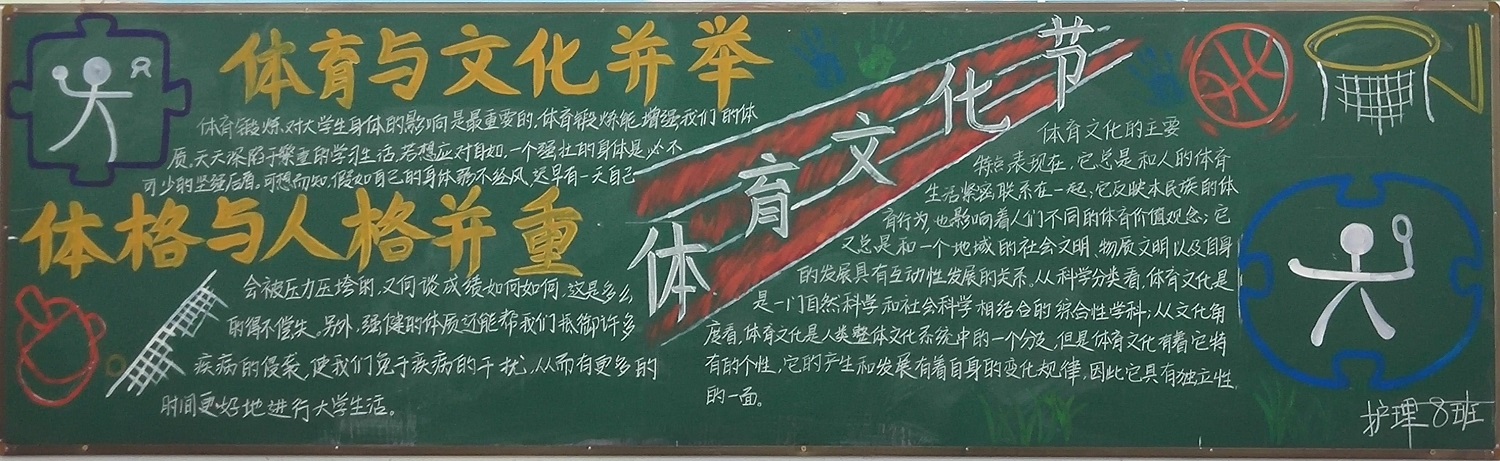 体育与文化并举
体育锻炼对大学生身体的影响是最重要的,体育锻炼能增强我们的体
质,天天深陷于繁重的学习生活,若想应对自如,一个强壮的身体是必不
可少的坚强后盾。可想而知,假如自己的身体弱不经风,迟早有一天自己
体格与人格并重
会被压力压垮的,又何谈成绩如何如何,这是多么
的得不偿失。另外,强健的体质还能帮我们抵御许多
疾病的侵袭,使我们免于疾病的干扰,从而有更多的
时间更好地进行大学生活。
体育文化节
体育文化的主要
特点表现在,它总是和人的体育
生活紧密联系在一起,它反映本民族的体
育行为,也影响着人们不同的体育价值观念;它
又总是和一个地域的社会文明,物质文明以及自身
的发展具有互动性发展的关系。从科学分类看,体育文化是
是一门自然科学和社会科学相结合的综合性学科;从文化角
度看,体育文化是人类整体文化系统中的一个分支,但是体育文化有着它特
有的个性,它的产生和发展有着自身的变化规律,因此它具有独立性
的一面。
护理8班